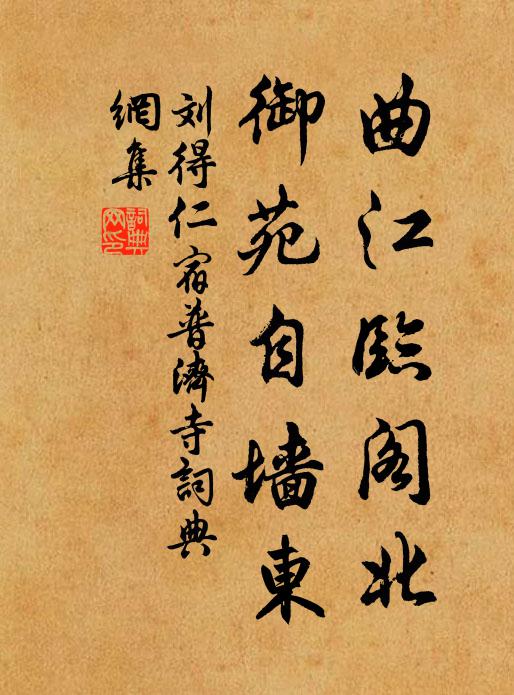 曲江臨阁北
御苑自墙東
刘得仁宿普濟寺詞典
網集
詞典
网印